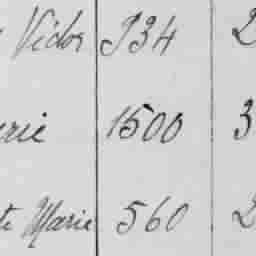 Victor 934 2
erie 1500 3
te Marie 560 2